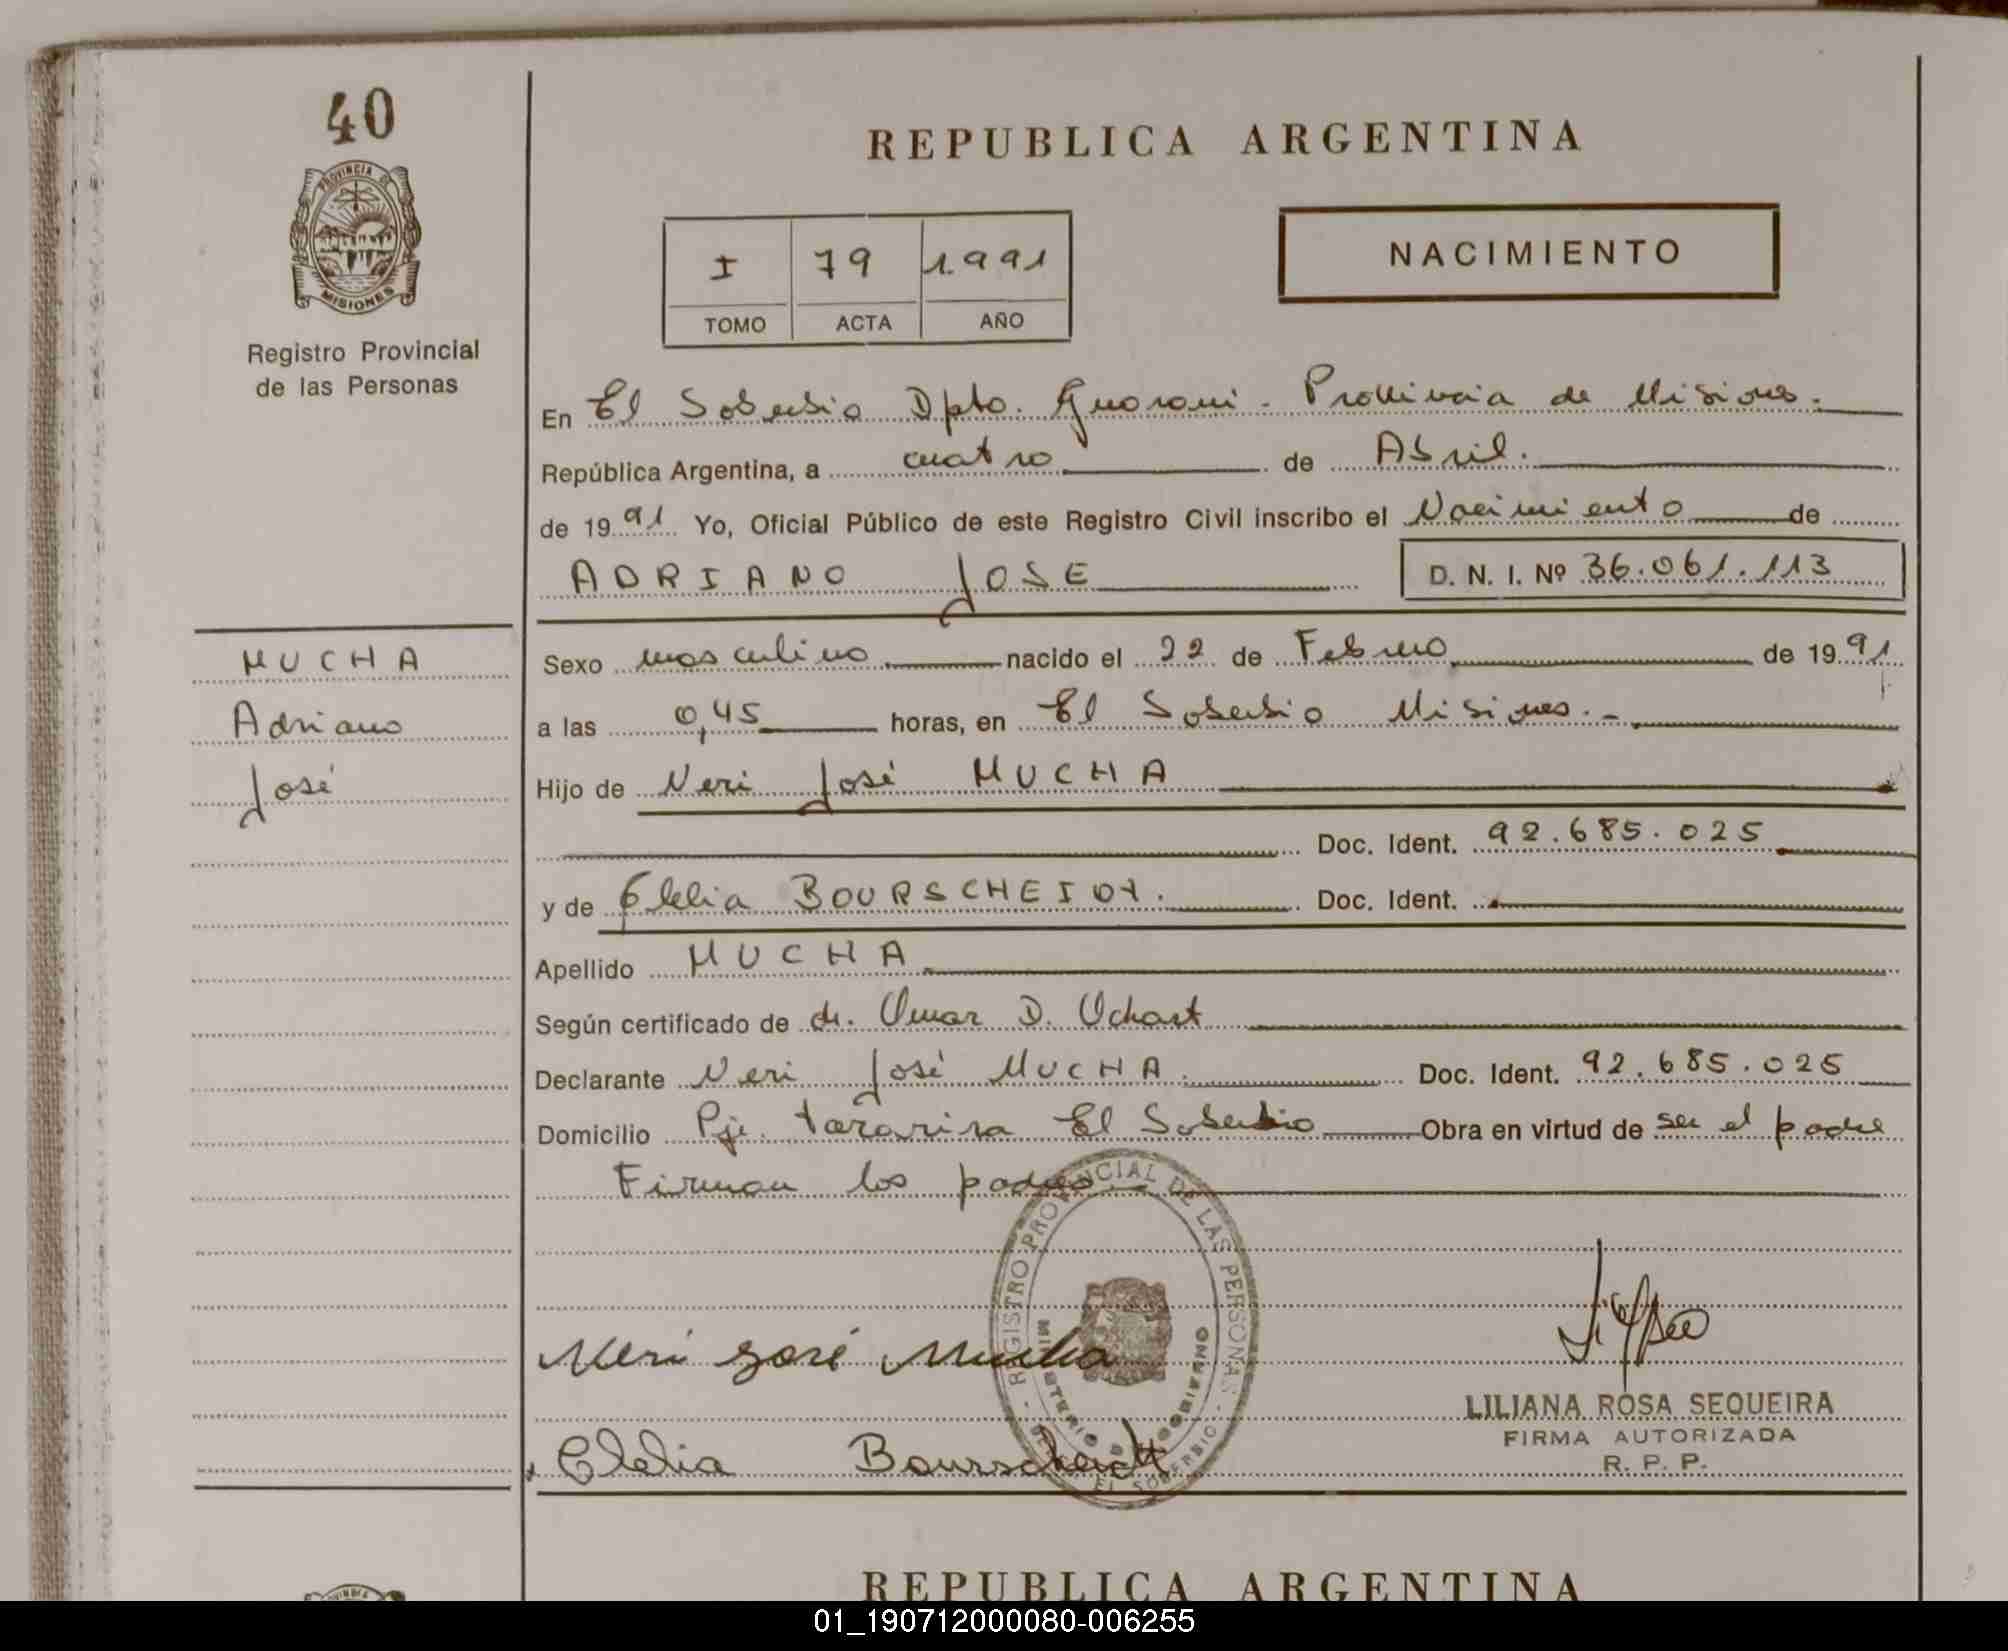 40
PROVINCIA DE
MISIONES
Registro Provincial
de las Personas
MUCHA
Adriano
José
REPUBLICA ARGENTINA
I 79 1.991
TOMO ACTA AÑO
NACIMIENTO
En El Soberbio Dpto. Guarani - Provincia de Misiones.
República Argentina, a cuatro de Abril.
de 1991 Yo, Oficial Público de este Registro Civil inscribo el Nacimiento de
ADRIANO JOSE D. N. I. Nº 36.061.113
Sexo masculino nacido el 22 de Febrero de 1991
a las 0,45 horas, en El Soberbio Misiones.-
Hijo de Neri José MUCHA
Doc. Ident. 92.685.025
y de Clelia BOURSCHEIDT. Doc. Ident.
Apellido MUCHA
Según certificado de dr. Omar D. Uchart
Declarante Neri José MUCHA. Doc. Ident. 92.685.025
Domicilio Pje. Tararira El Soberbio Obra en virtud de ser el padre
Firman los padres
REGISTRO PROVINCIAL DE LAS PERSONAS
MINISTERIO DE GOBIERNO
EL SOBERBIO
Neri José Mucha
LILIANA ROSA SEQUEIRA
FIRMA AUTORIZADA
R. P. P.
Clelia Bourscheidt
REPUBLICA ARGENTINA
01_190712000080-006255